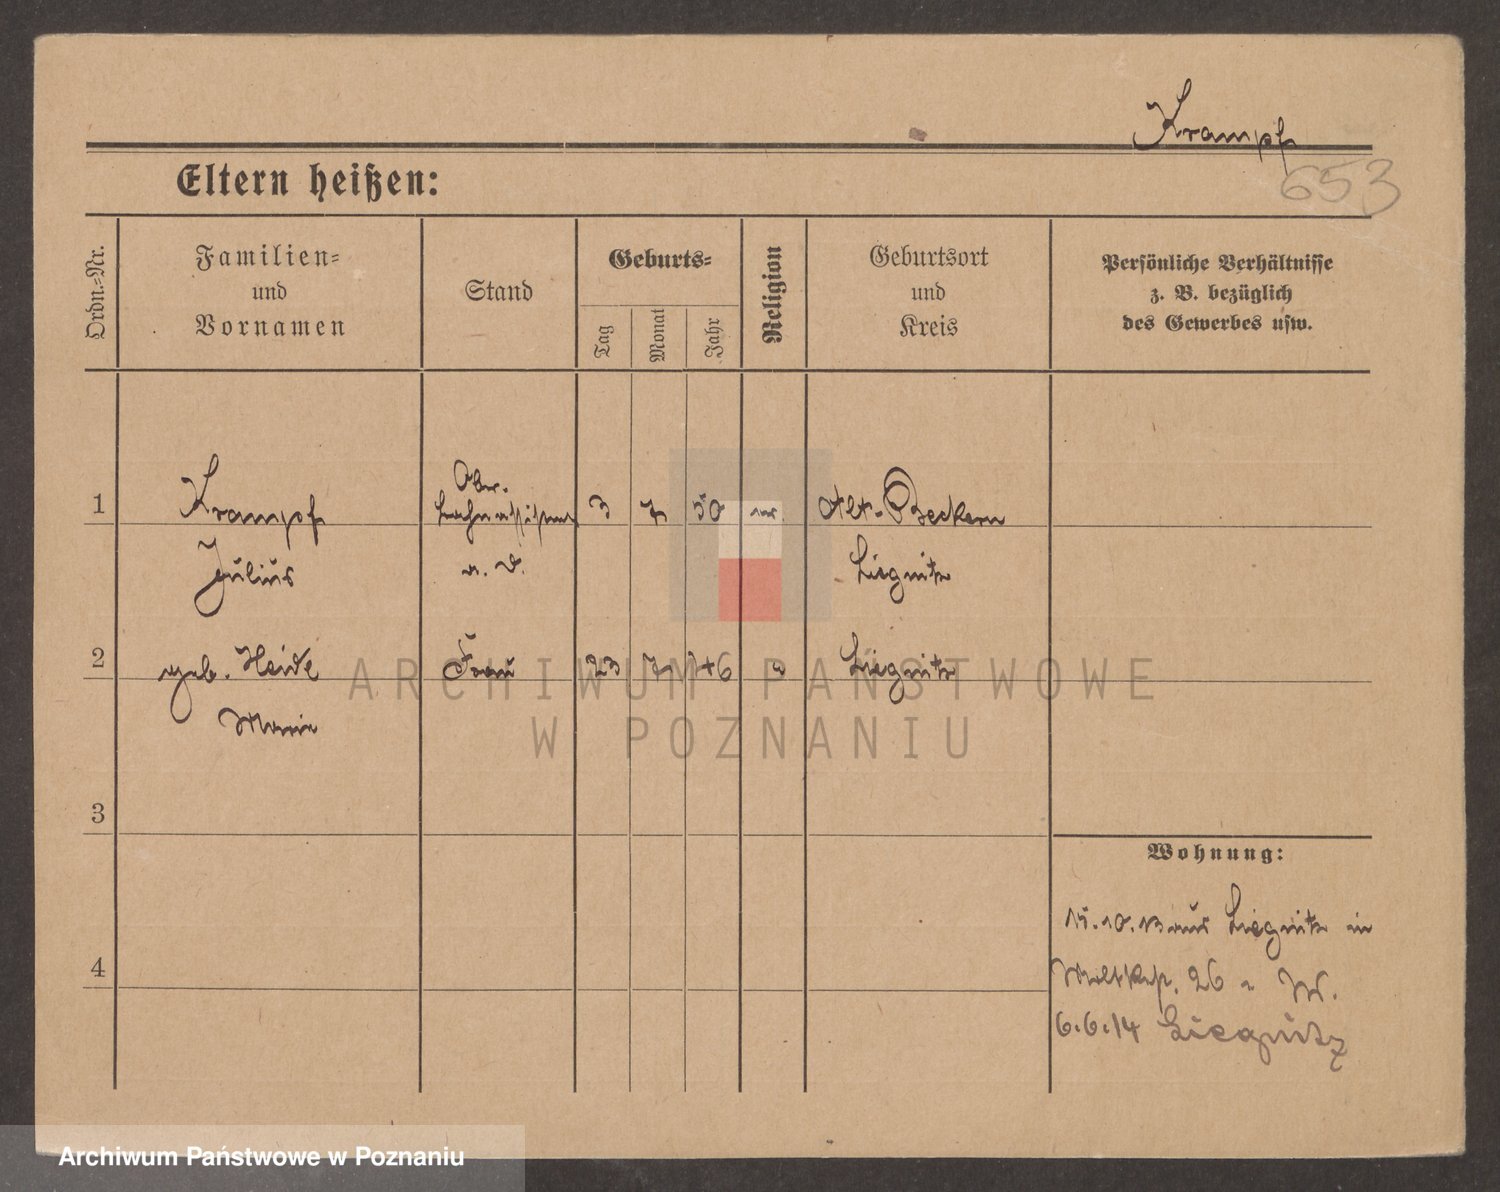 Krampf
653
Eltern heißen:
Ordn.-Nr.
Familien-
und
Vornamen
Stand
Geburts-
Tag
Monat
Jahr
Religion
Geburtsort
und
Kreis
Persönliche Verhältnisse
z. B. bezüglich
des Gewerbes usw.
1
Krampf
Ober-
a. D.
3
7
50
Alt-Beckern
Julius
Liegnitz
2
geb. Heidl
Frau
23
7
46
Liegnitz
Marie
3
4
Wohnung:
15.10.13 aus Liegnitz in
Moltkestr. 26 W.
6.6.14 Liegnitz
ARCHIWUM PAŃSTWOWE
W POZNANIU
Archiwum Państwowe w Poznaniu